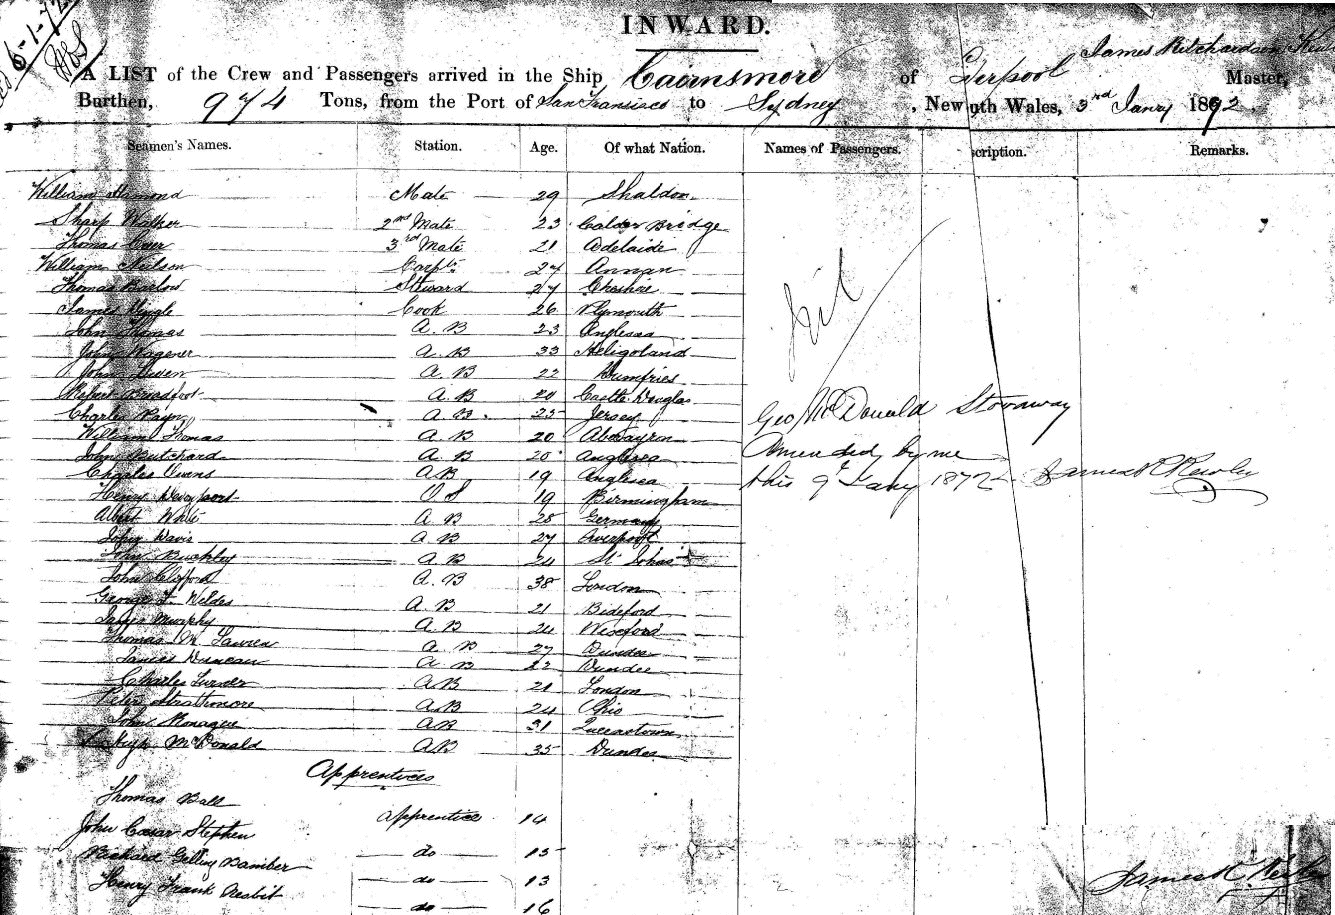 INWARD.
A LIST of the Crew and Passengers arrived in the Ship Cairnsmore of Liverpool James Ritchardson Master,
Burthen, 974 Tons, from the Port of San Fransisco to Sydney, New South Wales, 3rd Jany 1872
Seamen's Names. Station. Age. Of what Nation. Names of Passengers. scription. Remarks.
William Mate 29 Shaldon
Sharp Walker 2nd Mate 23 Calder Bridge
Thomas 3rd Mate 21 Adelaide
William Neilson Carptr 27 Annan
Thomas Barlow Steward 27 Cheshire
James Cook 26 Plymouth
John Thomas A.B 23 Anglesea
John Wagener A.B 33 Heligoland
John A.B 22 Dumfries
A.B 20 Castle Douglas
Charles A.B. 25 Jersey
William Thomas A.B 20 Aberayron
John A.B 20 Anglesea
Charles Owens AB 19 Anglesea
Henry Davenport OS 19 Birmingham
Albert White A B 28 Germany
John Davis A.B 27 Liverpool
John Buckley A.B 24 St Johns
John Clifford A.B 38 London
George F. Weldes A.B 21 Bideford
James Murphy A B 24 Wexford
Thomas Mc Lawren A B 27 Dundee
James Duncan A B 22 Dundee
Charles Turner AB 21 London
Peter Strathmore A.B 24 Ohio
John Monague AB 31 Queenstown
Hugh McDonald AB 35 Dundee
Geo McDonald Stowaway
Amended by me
this 9 Jany 1872 James K Kewley
Apprentices
Thomas Ball Apprentice 14
John Caesar Stephen do 15
Richard Gelling Bamber do 13
Henry Frank Nesbit do 16
James K. Kewley